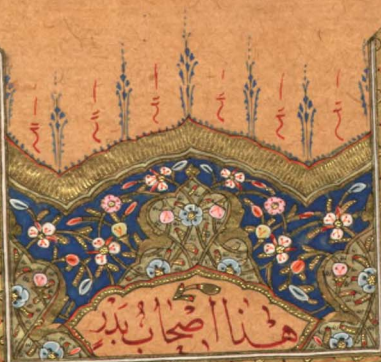 هَذَا اَصْحَابُ بَدْرٍ